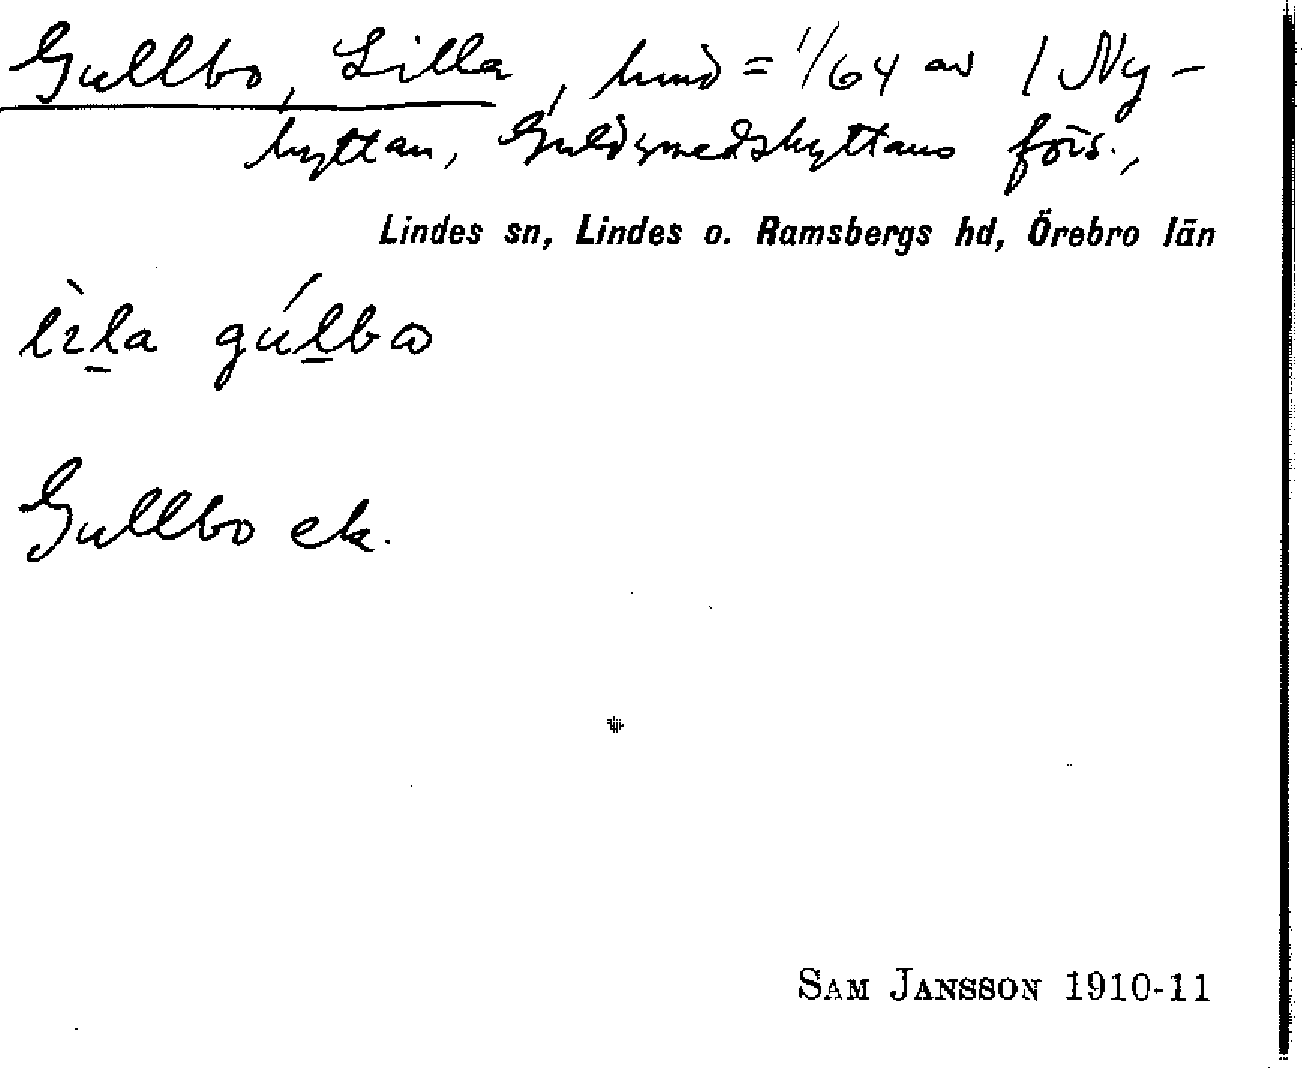 Gullbo, Lilla, hmd = 1/64 av 1 Ny-
hyttan, Guldsmedshyttans förs.,
Lindes sn, Lindes o. Ramsbergs hd, Örebro län
Gullbo ek.
SAM JANSSON 1910-11